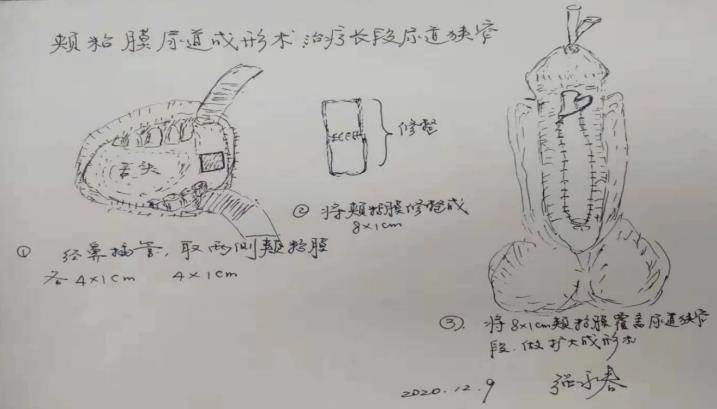 颊粘膜尿道成形术治疗长段尿道狭窄
舌头
修整
① 经鼻插管,取两侧颊粘膜
各4×1cm 4×1cm
② 将颊粘膜修整成
8×1cm
③. 将8×1cm颊粘膜覆盖尿道狭窄
段.做扩大成形术
2020.12.9 张永春